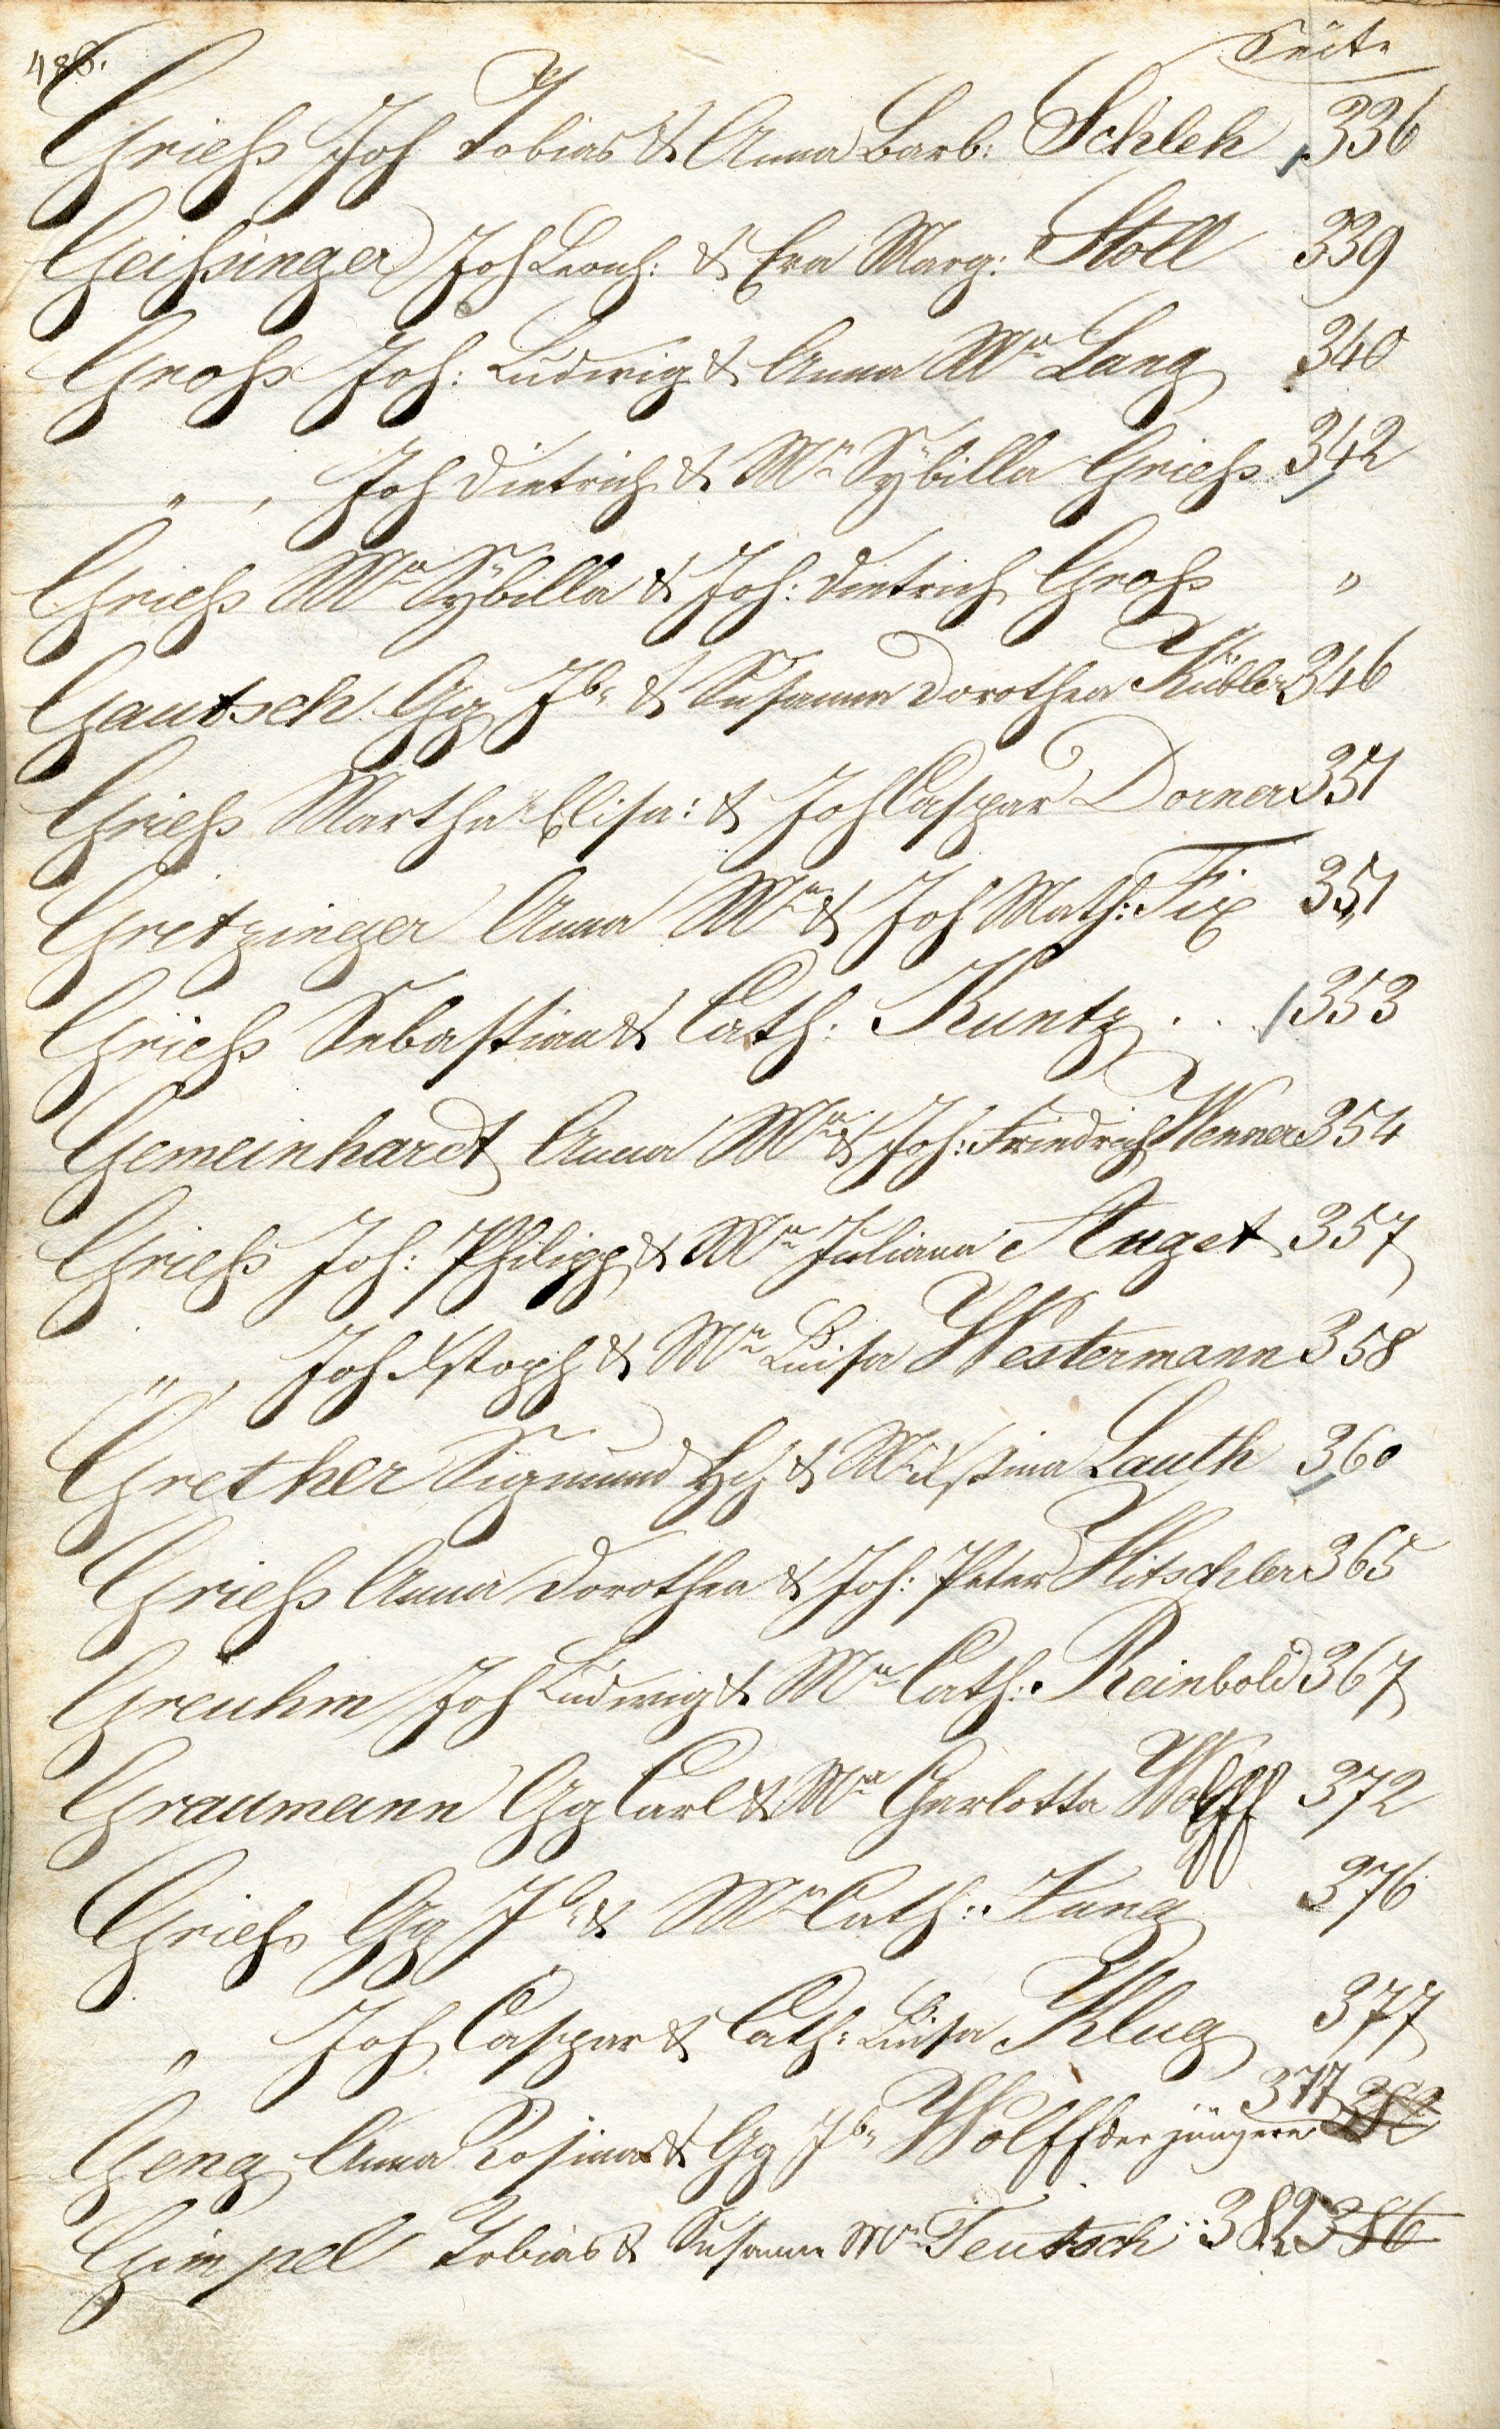 486.
Seite
Grieſs Joh Tobias & Anna Barb: Schleh 336
Geiſsinger Joh Leonh: & Eva Marg: Stoll 339
Groſs Joh: Ludwig & Anna Mª Lang 340
" , Joh Dietrich & Mª Sÿbilla Grieſs 342
Grieſs Mª Sÿbilla & Joh: Dietrich Groſs "
Gautsch Gg Jb. & Susanna Dorothea Kübler 346
Grieſs Martha Elisa: & Joh Caspar Dorner 351
Gretzinger Anna Mª & Joh Math: Fix 351
Grieſs Sebastian & Cath: Kuntz . . 353
Gemeinhardt Anna Mª & Joh: Friedrich Wenner 354
Grieſs Joh: Philipp & Mª Juliana Auget 357
" , Joh Xstoph & Mª Luisa Westermann 358
Grether Sigmund Hch & Mª Xstina Lauth 360
Grieſs Anna Dorothea & Joh: Peter Hitschler 365
Greuhm Joh Ludwig & Mª Cath: Reinbold 367
Graumann Gg Carl & Mª Charlotta Wolff 372
Grieſs Gg Jb. & Mª Cath: Jung 376
" Joh Caspar & Cath: Luisa Klug 377
Geng Anna Rosina & Gg Jb. Wolff der jüngere 377
Gimpel Tobias & Susanna Mª Teutsch .. 382 386